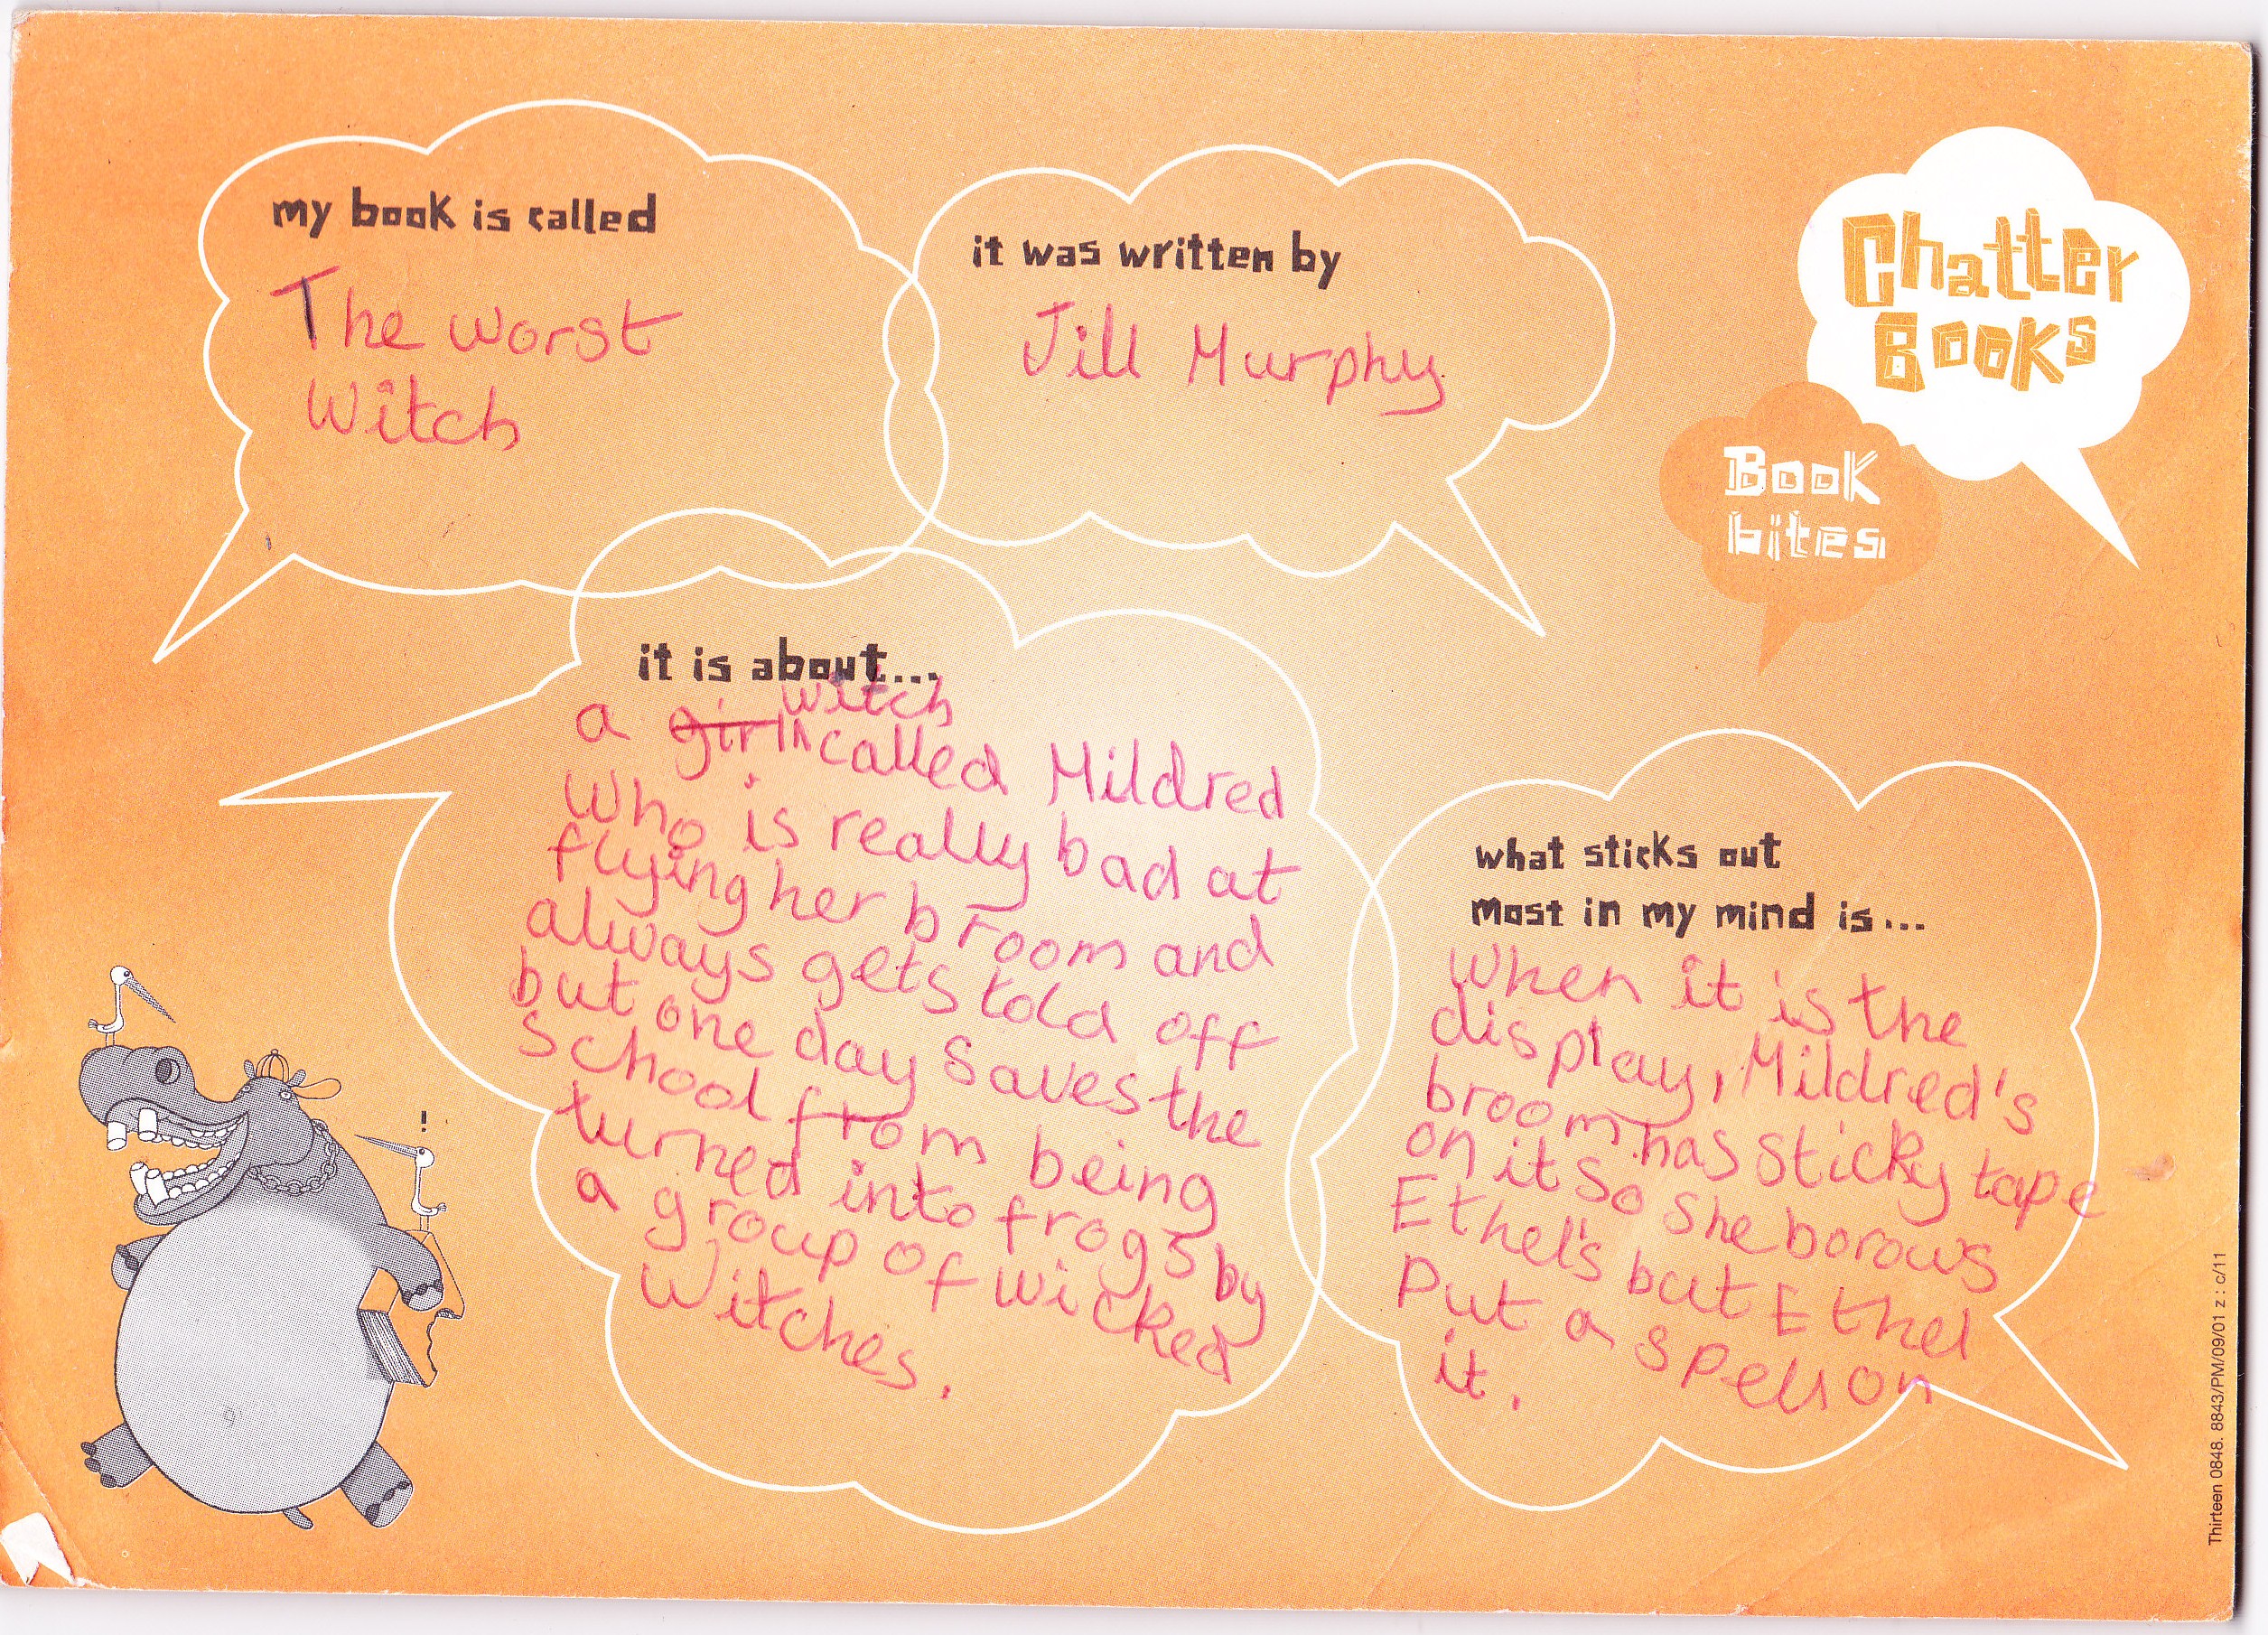 my book is called
The worst
Witch
it was written by
Jill Murphy
Chatter
Books
Book
bites
it is about...
witch
a girl ^ called Mildred
Who is really bad at
flying her broom and
always gets told off
but one day saves the
school from being
turned into frogs by
a group of wicked
Witches.
what sticks out
most in my mind is...
When it is the
display, Mildred's
broom has sticky tape
on it so she borows
Ethel's but Ethel
Put a spell on
it.
!
Thirteen 0848. 8843/PM/09/01 z : c/11